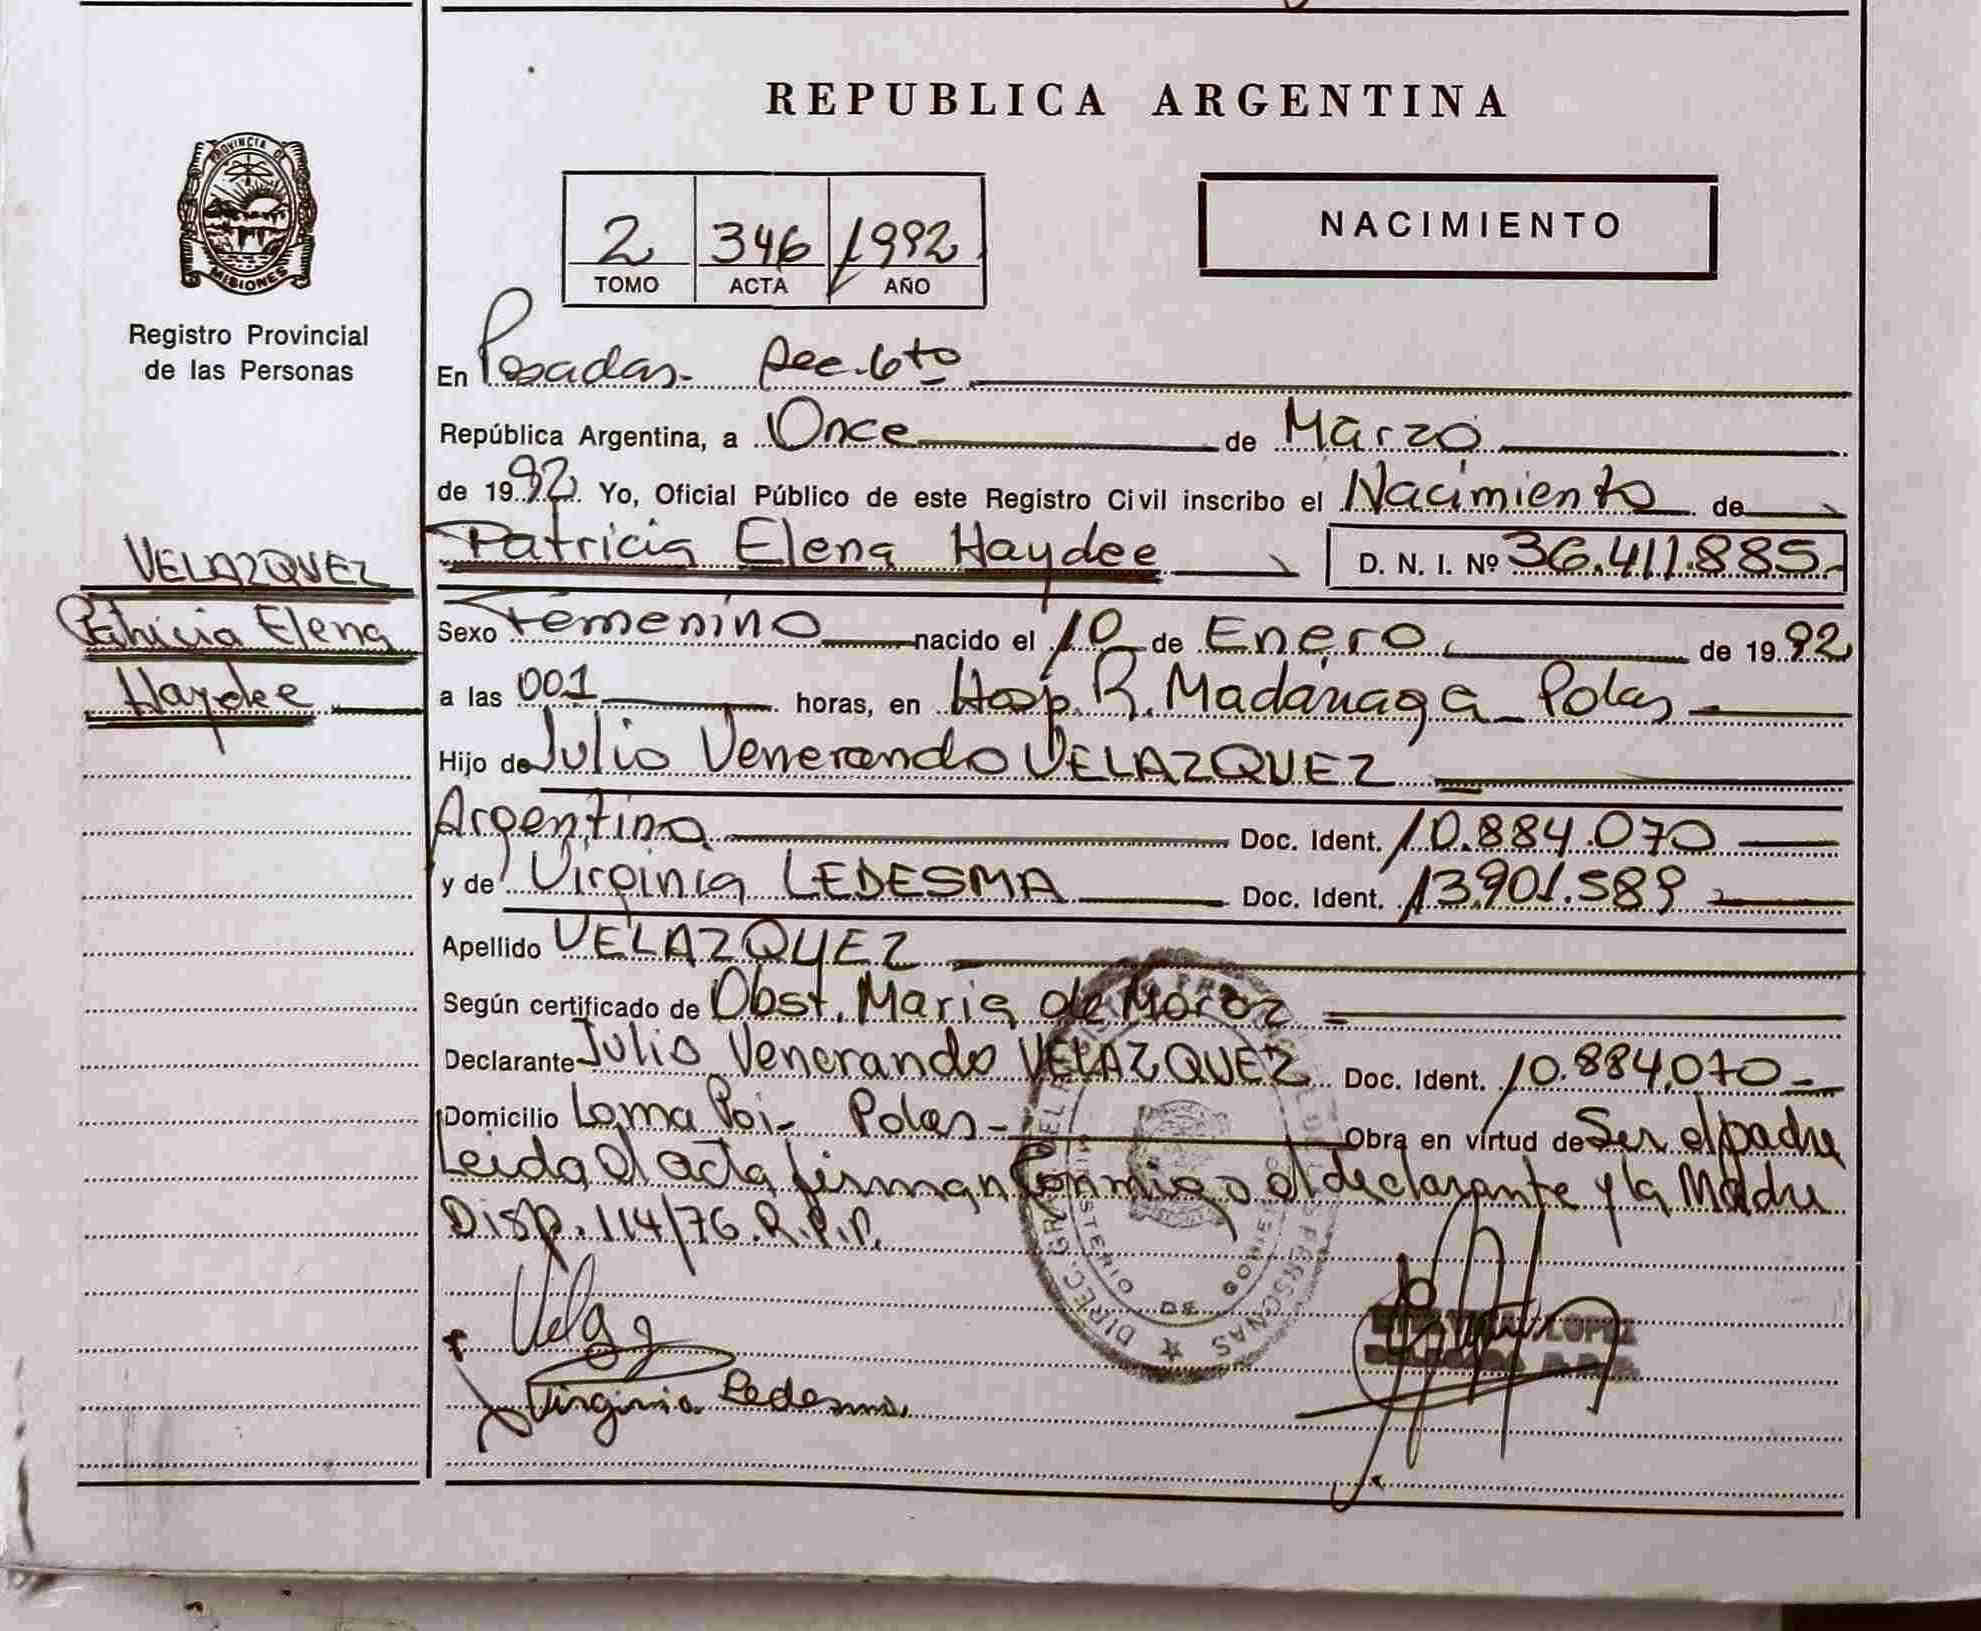 REPUBLICA ARGENTINA
PROVINCIA DE
MISIONES
Registro Provincial
de las Personas
2 346 1992
TOMO ACTA AÑO
NACIMIENTO
En Posadas - Sec. 6to
República Argentina, a Once de Marzo
de 1992 Yo, Oficial Público de este Registro Civil inscribo el Nacimiento de
VELAZQUEZ
Patricia Elena
Haydee
Patricia Elena Haydee D. N. I. Nº 36.411.885.-
Sexo Femenino nacido el 10 de Enero de 1992
a las 001 horas, en Hosp. R. Madariaga - Pdas
Hijo de Julio Venerando VELAZQUEZ
Argentino Doc. Ident. 10.884.070
y de Virginia LEDESMA Doc. Ident. 13.901.589
Apellido VELAZQUEZ
Según certificado de Obst. Maria de Moroz
Declarante Julio Venerando VELAZQUEZ Doc. Ident. 10.884.070
Domicilio Loma Poi - Pdas - Obra en virtud de Ser el padre
Leida el acta firman conmigo el declarante y la Madre
Disp. 114/76.R.P.P.
DIREC. GRAL. DEL PERSONAS
MINISTERIO DE GOBIERNO
Virginia Ledesma
LOPEZ